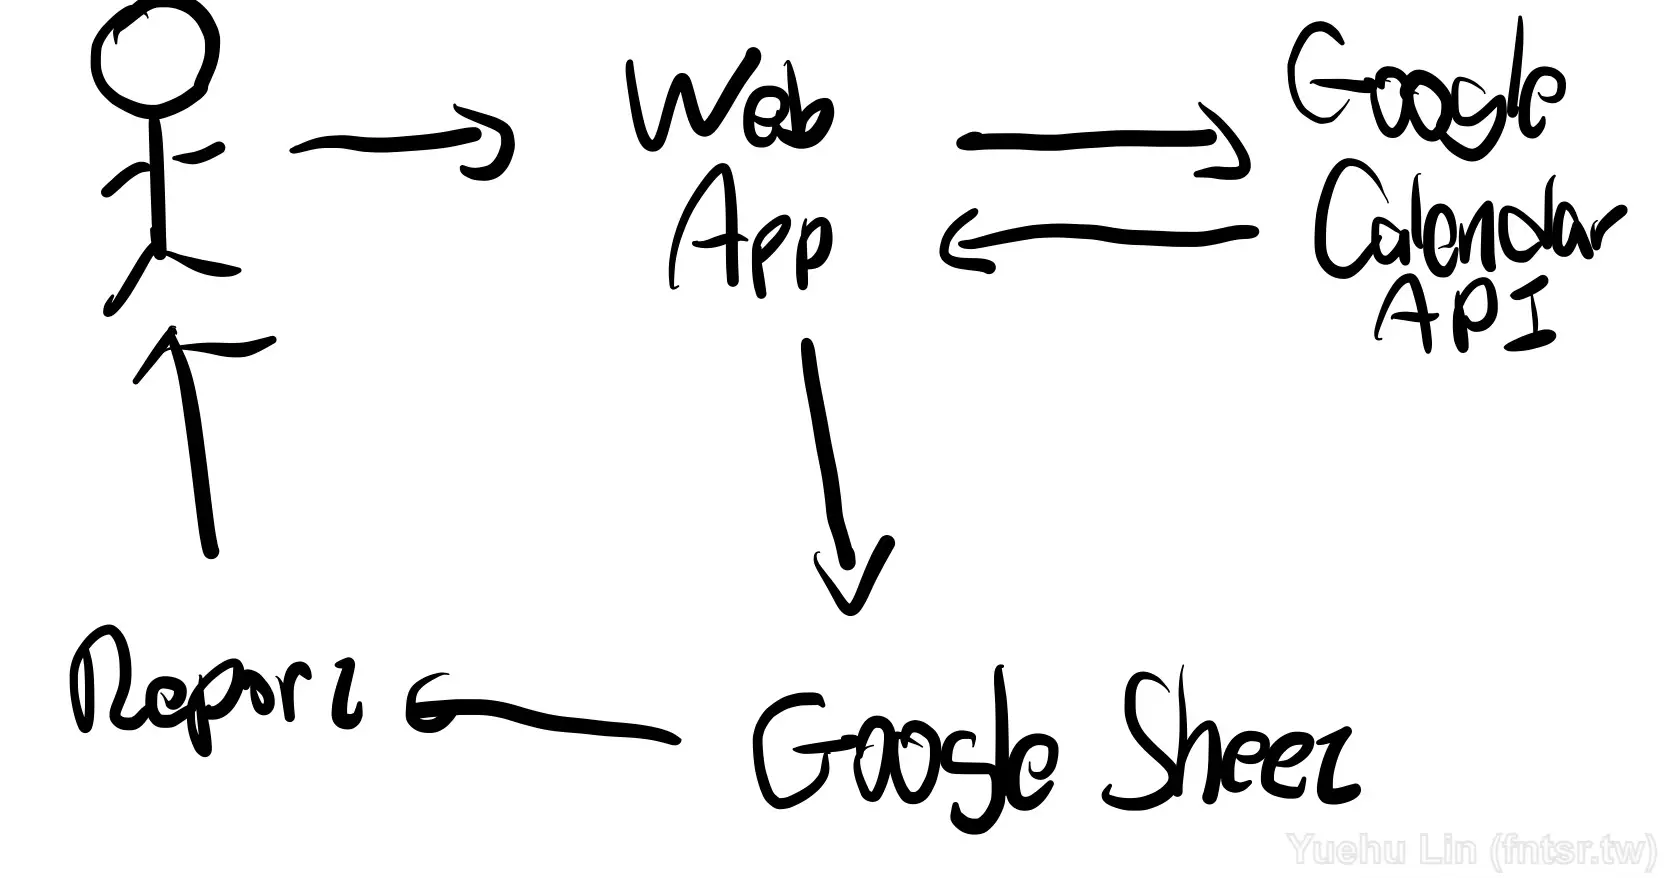 Web
App
Google
Calendar
API
Report
Google Sheet
Yuehu Lin (fntsr.tw)